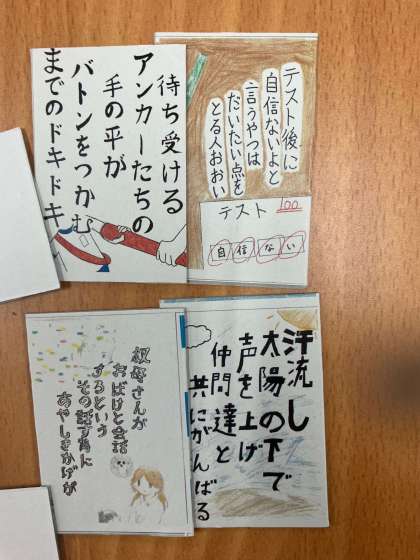 テスト後に
自信ないよと
言うやつは
だいたい点を
とる人おおい
テスト 100
自信ない
待ち受ける
アンカーたちの
手の平が
バトンをつかむ
までのドキドキ
汗流し
太陽の下で
声を上げ
仲間達と
共にがんばる
叔母さんが
おばけと会話
するという
その話す為に
あやしきかげが